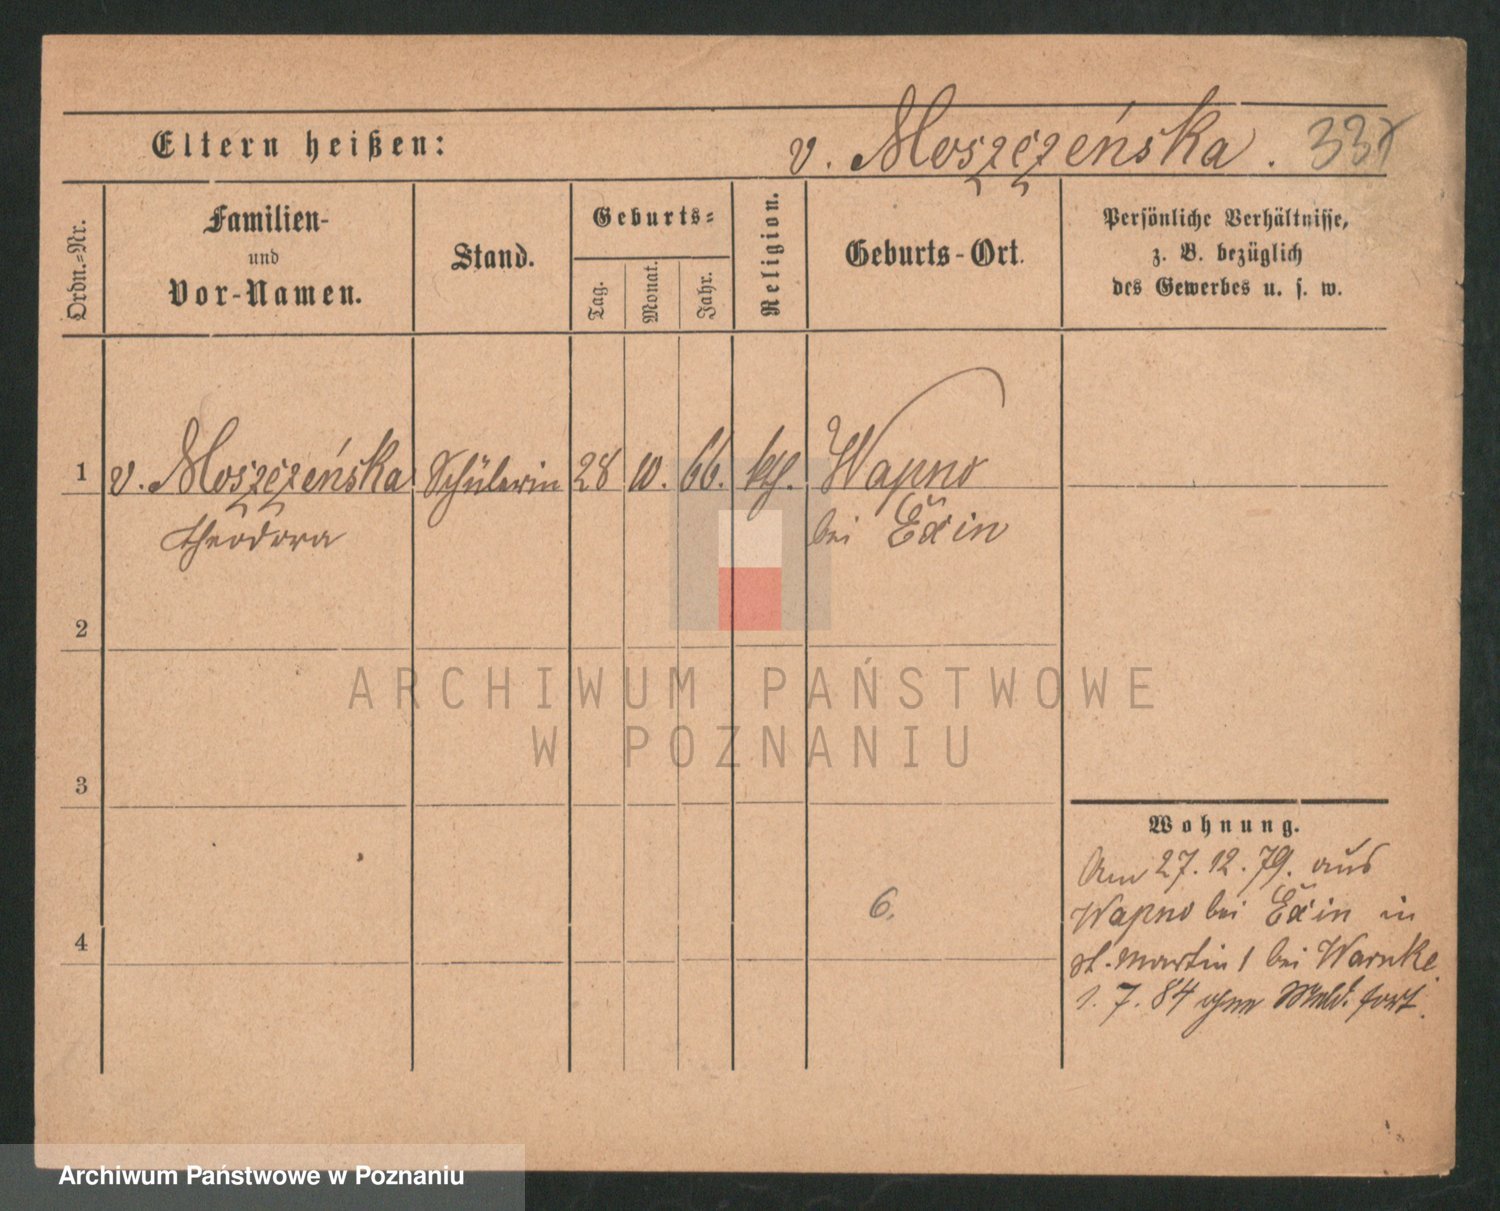 Eltern heißen:
v. Moszczeńska. 337
Ordn.-Nr.
Familien-
und
Vor-Namen.
Stand.
Geburts-
Tag.
Monat.
Jahr.
Religion.
Geburts-Ort.
Persönliche Verhältnisse,
z. B. bezüglich
des Gewerbes u. s. w.
1 v. Moszczeńska Schülerin 28 10. 66. kth. Wapno
Theodora bei Exin
2
3
4
6.
Wohnung.
Am 27.12.79. aus
Wapno bei Exin in
St. Martin 1 bei Warnke
1.7.84 ohne Meld. fort.
ARCHIWUM PAŃSTWOWE
W POZNANIU
Archiwum Państwowe w Poznaniu